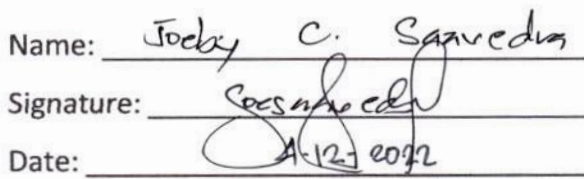 Name: Joeby C. Saavedra
Signature:
Date: 4-12-2022